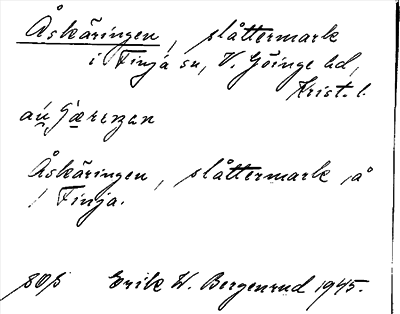 Åskäringen, slåttermark
i Finja sn, V. Göinge hd,
Krist. l.
Åskäringen, slåttermark, å
Finja.
Erik W. Bergenrud 1945.